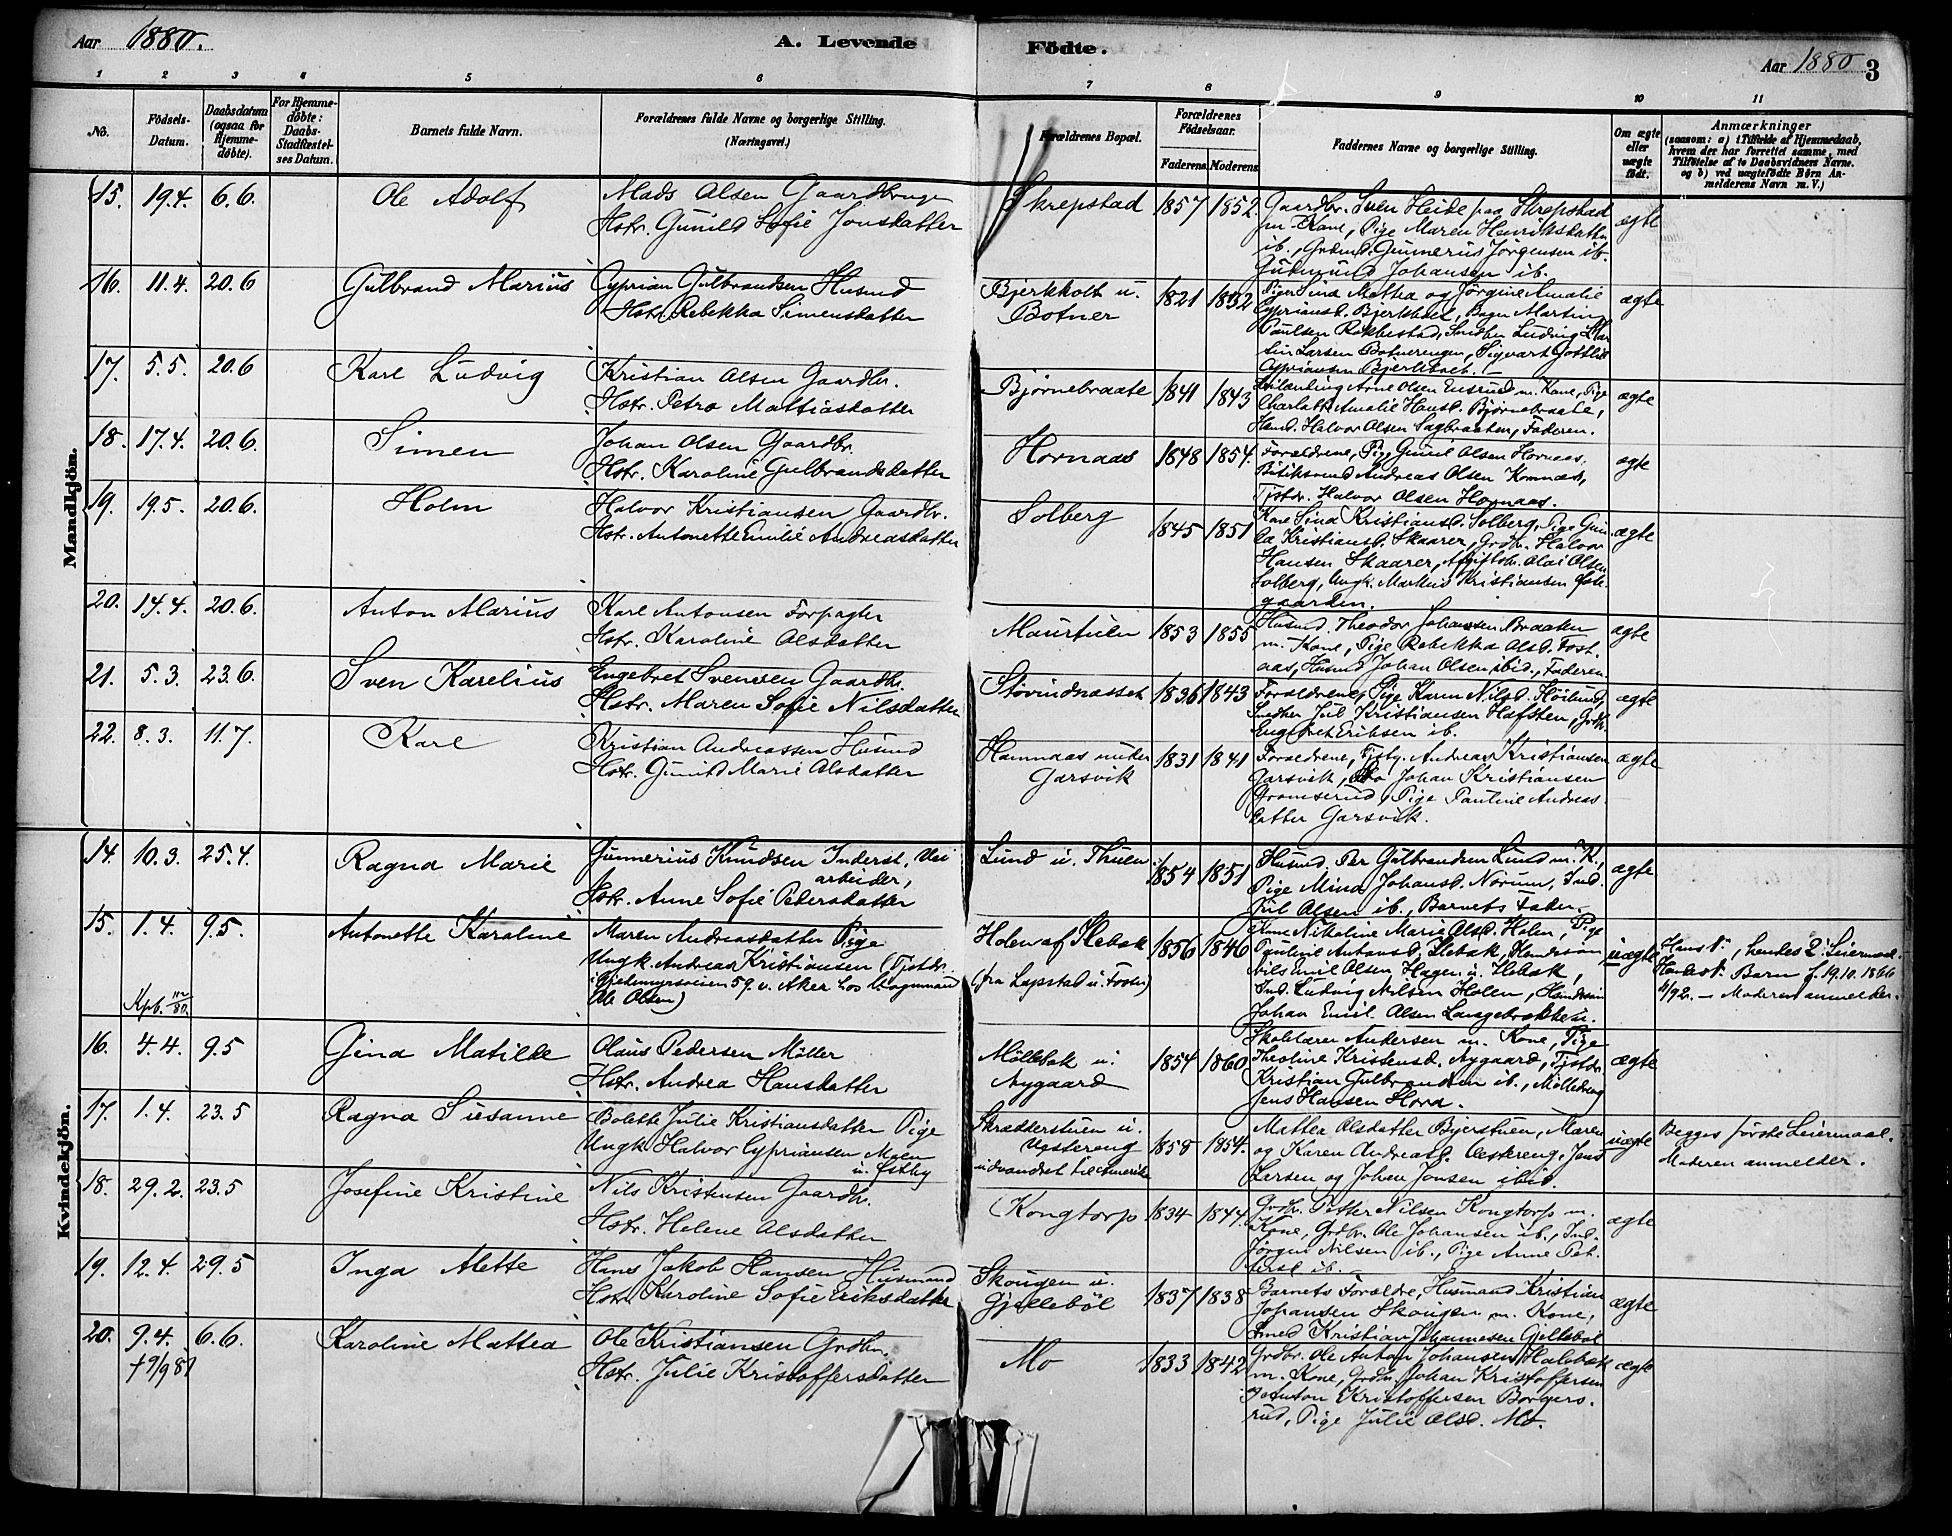 Aar 1880.
A. Levende Födte.
Aar 1880 3
1 2 3 4 5 6 7 8 9 10 11
No.
Födsels-Datum.
Daabsdatum (ogsaa for Hjemme-döbte).
For Hjemme-döbte: Daabs-Stadfæstel-ses Datum.
Barnets fulde Navn.
Forældrenes fulde Navne og borgerlige Stilling. (Næringsvei.)
Forældrenes Bopæl.
Forældrenes Födselsaar.
Faderens Moderens
Faddernes Navne og borgerlige Stilling.
Om ægte eller uægte födt.
Anmærkninger
(saasom: a) i Tilfælde af Hjemmedaab, hvem der har forrettet samme, med Tilföielse af to Daabsvidners Navne. og b) ved uægtefödte Börn An-melderens Navn m. V.)
Mandkjön.
15. 19.4. 6.6. Ole Adolf
Mads Olsen Gaardbruger
Hstr. Gunild Sofie Jonsdatter
Skrepstad 1857 1852.
Gaardbr. Sven Heide paa Skrepstad
m. Kone, Pige Maren Henriksdatter
ib., Gunnerus Jörgensen ib.
Gudmund Johansen ib.
ægte
16. 11.4. 20.6 Gulbrand Marius
Cyprian Gulbrandsen Husmd
Hstr. Rebekka Simensdatter
Bjerkholt u.
Botner
1821 1832
Piger Sina Mathea og Jörgine Amalie
Cypriansd. Bjerkholt, Martin
Paulsen Rikkestad, Ludvig
Larsen Botnerengen, Sigvart Gotlieb
Cypriansen Bjerkholt.
ægte
17. 5.5. 20.6 Karl Ludvig
Kristian Olsen Gaardbr.
Hstr. Petra Mattiasdatter
Bjørnebraate 1841 1843
Arne Olsen Ensrud m. Kone, Pige
Charlotte Amalie Hansd. Bjørnebraate,
Halvor Olsen Sagbraaten, Faderen.
ægte
18. 17.4. 20.6. Simen
Johan Olsen Gaardbr.
Hstr. Karoline Gulbrandsdatter
Hornaas 1848 1854.
Forældrene, Pige Gunil Olsen Hornaas,
Andreas Olsen Komnæs,
Tjstdr. Halvor Olsen Hornaas.
ægte
19. 19.5. 20.6. Holm
Halvor Kristiansen Gaardbr.
Hstr. Antonette Emilie Andreasdatter
Solberg 1845 1851
Kone Sina Kristiansd. Solberg, Pige
Kristiansd. Skaarer, Grdbr. Halvor
Hansen Skaarer, Olai Olsen
Solberg, Ungk. Markus Kristiansen
gaarden.
ægte
20. 14.4. 20.6. Anton Marius
Karl Antonsen Forpagter
Hstr. Karoline Olsdatter
Maurtuen 1853 1855
Husmd. Theodor Johansen Braaten
m. Kone, Pige Rebekka Olsd. Fost-
aas, Husmd Johan Olsen ibid., Faderen.
ægte
21. 5.3. 23.6. Sven Karelius
Engebret Svensen Gaardbr.
Hstr. Maren Sofie Nilsdatter
Støvindnæsset 1836 1843
Forældrene, Pige Karen Nilsd. Höilund,
Snedker Jul Kristiansen Hafsten, Grdbr.
Engebret Eriksen ib.
ægte
22. 8.3. 11.7. Karl
Kristian Andreassen Husmd
Hstr. Gunild Marie Olsdatter
Hamnaas under
Garsvik
1831 1841
Forældrene, Andreas Kristiansen
Garsvik, Do Johan Kristiansen
Gromserud, Pige Pauline Andreas-
datter Garsvik.
ægte
Kvindekjön.
14. 10.3. 25.4. Ragna Marie
Gunnerius Knudsen Inderst, Vei
arbeider,
Hstr. Anne Sofie Pedersdatter
Lund u. Thuen 1854 1851
Husmd. Per Gulbrandsen Lund m. K.,
Pige Mina Johansd. Norum, Ind.
Jul Olsen ib., Barnets Fader.
ægte
15. 1.4. 9.5. Antonette Karoline
Kpb. 11/2 80.
Maren Andreasdatter Pige
Ungk. Andreas Kristiansen (Tjstdr.
Gjedemyrsveien 59 v. Aker hos Vognmand
Ole Olsen)
Holen af Slebak
(fra Lapstad u. Foster)
1856 1846
Kone Nikoline Marie Olsd. Holen, Pige
Pauline Antonsd. Slebak,
Emil Olsen Hagen u. Slebak,
Ind. Ludvig Nilsen Holen,
Johan Emil Olsen Langebrække u.
uægte
Hans 1., hendes 2. Leiermaal.
Hendes 1. Barn f. 19.10.1866
4/92. – Moderen anmelder.
16. 4.4. 9.5 Gina Matilde
Olaus Pedersen Møller
Hstr. Andrea Hansdatter
Møllebak u.
Nygaard
1854 1860
Skolelærer Andersen m. Kone, Pige
Theoline Kristensd. Nygaard, Tjstdr.
Kristian Gulbrandsen ib., Mölledreng
Jens Hansen Hora.
ægte
17. 1.4. 23.5 Ragna Susanne
Bolette Julie Kristiansdatter Pige
Ungk. Halvor Cypriansen Moen
u. Østby
Skrædderstuen u.
Vestereng
udvandret til Amerika
1858 1854.
Mattea Olsdatter Bjerstuen, Maren
og Karen Andreasd. Vestereng, Jens
Larsen og Johan Jonsen ibid.
uægte
Begges förste Leiermaal.
Moderen anmelder.
18. 29.2. 23.5 Josefine Kristine
Nils Kristensen Gaardbr.
Hstr. Helene Olsdatter
Kongtorp 1834 1844.
Grdbr. Petter Nilsen Kongtorp m.
Kone, Grdbr. Ole Johansen ib., Ind.
Jörgen Nilsen ib., Pige Anne Pet-
tersd. ib.
ægte
19. 12.4. 29.5 Inga Mette
Hans Jakob Hansen Husmand
Hstr. Karoline Sofie Eriksdatter
Skougen u.
Gjellebøl
1837 1838
Barnets Forældre, Husmand Kristian
Johansen Skougen m. Kone,
Smed Kristian Johannesen Gjellebøl
ægte
20. 9.4. 6.6. Karoline Mattea
† 9/9 81
Ole Kristiansen Grdbr.
Hstr. Julie Kristoffersdatter
Mo 1833 1842
Grdbr. Ole Anton Johansen Holebæk
m. Kone, Grdbr. Johan Kristoffersen
Do Anton Kristoffersen Borgers-
rud, Pige Julie Olsd. Mo.
ægte